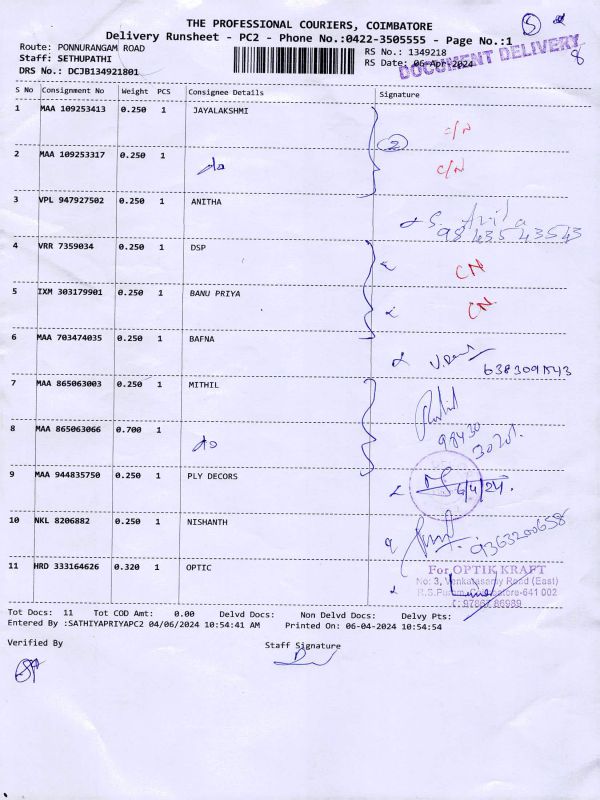 THE PROFESSIONAL COURIERS, COIMBATORE
Delivery Runsheet - PC2 - Phone No.:0422-3505555 - Page No.:1
5
Route: PONNURANGAM ROAD
RS No.: 1349218
Staff: SETHUPATHI
RS Date: 06-Apr-2024
DOCUMENT DELIVERY
8
DRS No.: DCJB134921801
S No Consignment No Weight PCS Consignee Details Signature
1 MAA 109253413 0.250 1 JAYALAKSHMI C/N
2
2 MAA 109253317 0.250 1 do C/N
3 VPL 947927502 0.250 1 ANITHA S. Anita
9843543543
4 VRR 7359034 0.250 1 DSP CN
5 IXM 303179901 0.250 1 BANU PRIYA CN
6 MAA 703474035 0.250 1 BAFNA
7 MAA 865063003 0.250 1 MITHIL
98430
8 MAA 865063066 0.700 1 do
9 MAA 944835750 0.250 1 PLY DECORS 6/4/24.
10 NKL 8206882 0.250 1 NISHANTH 9363200658
11 HRD 333164626 0.320 1 OPTIC
For OPTIK KRAFT
No: 3, Venkatasamy Road (East)
Tot Docs: 11 Tot COD Amt: 0.00 Delvd Docs: Non Delvd Docs: Delvy Pts:
Entered By :SATHIYAPRIYAPC2 04/06/2024 10:54:41 AM Printed On: 06-04-2024 10:54:54
Verified By Staff Signature